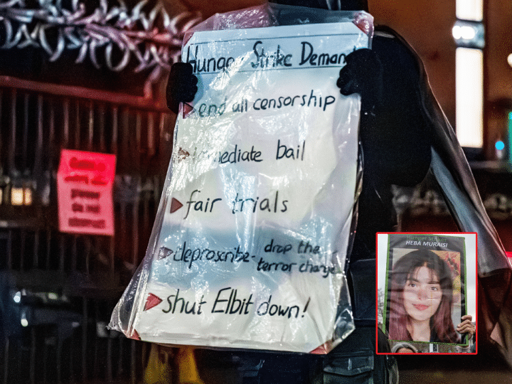 Hunger Strike Demands
end all censorship
immediate bail
fair trials
deproscribe - drop the
terror charge
shut Elbit down!
HEBA MURAISI